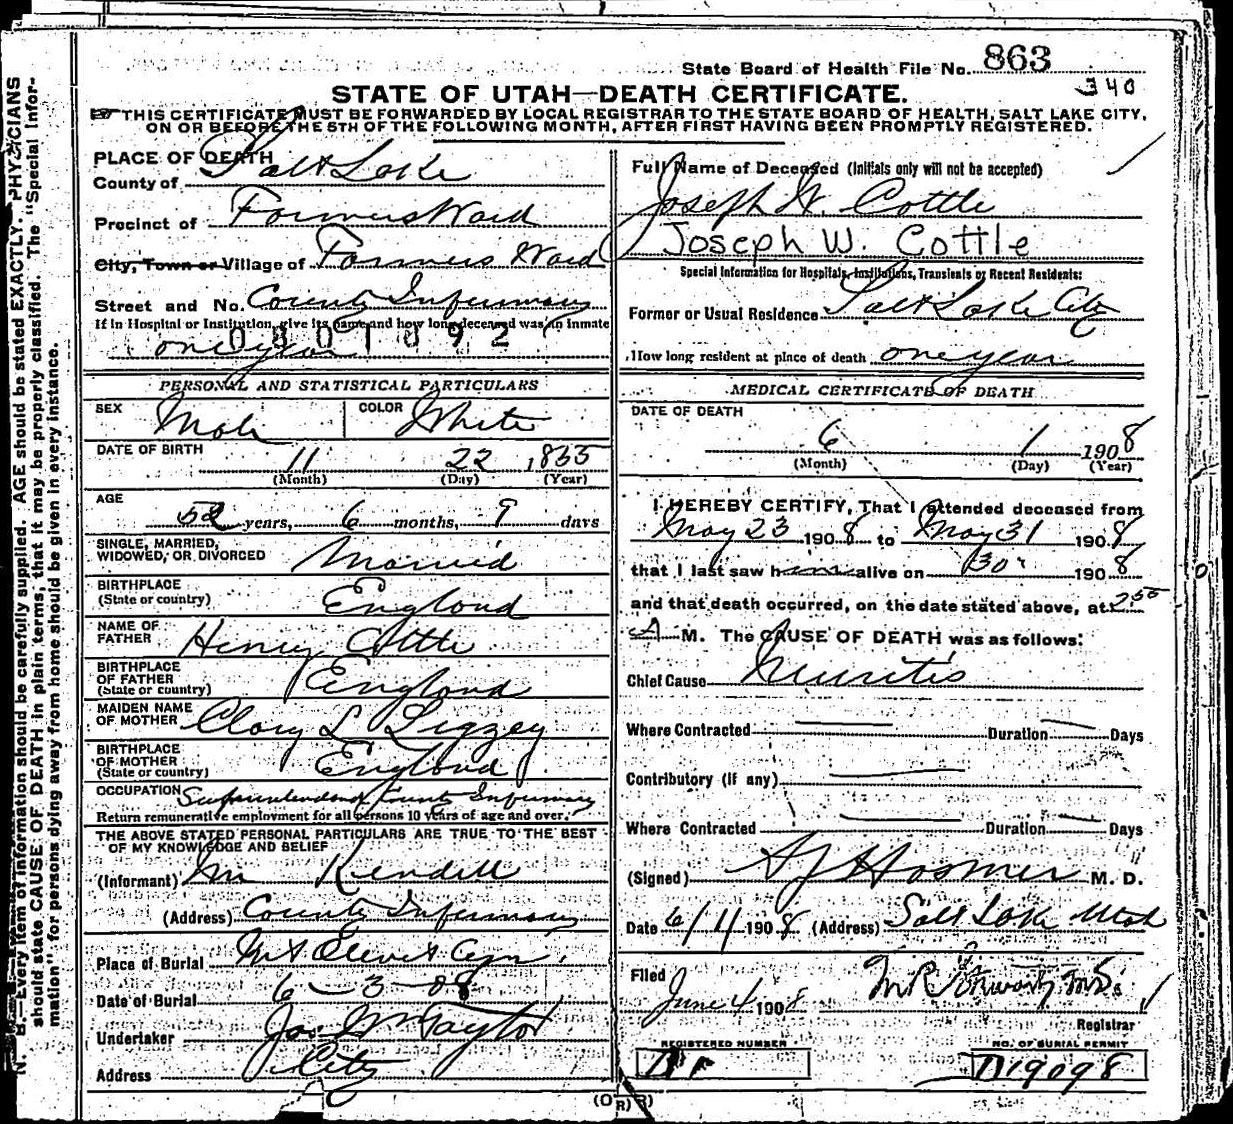 State Board of Health File No. 863
340
STATE OF UTAH—DEATH CERTIFICATE.
THIS CERTIFICATE MUST BE FORWARDED BY LOCAL REGISTRAR TO THE STATE BOARD OF HEALTH, SALT LAKE CITY,
ON OR BEFORE THE 5TH OF THE FOLLOWING MONTH, AFTER FIRST HAVING BEEN PROMPTLY REGISTERED.
PLACE OF DEATH
County of Salt Lake
Precinct of Farmers Ward
City, Town or Village of Farmers Ward
Street and No. County Infirmary
If in Hospital or Institution, give its name and how long deceased was an inmate
0801892
one year
PERSONAL AND STATISTICAL PARTICULARS
SEX Male COLOR White
DATE OF BIRTH 11 22 1855
(Month) (Day) (Year)
AGE
52 years, 6 months, 9 days
SINGLE, MARRIED,
WIDOWED, OR DIVORCED Married
BIRTHPLACE
(State or country) England
NAME OF
FATHER Henry Cottle
BIRTHPLACE
OF FATHER
(State or country) England
MAIDEN NAME
OF MOTHER Clary L Ligzey
BIRTHPLACE
OF MOTHER
(State or country) England
OCCUPATION Superintendent County Infirmary
Return remunerative employment for all persons 10 years of age and over.
THE ABOVE STATED PERSONAL PARTICULARS ARE TRUE TO THE BEST
OF MY KNOWLEDGE AND BELIEF
(Informant) Wm Kendell
(Address) County Infirmary
Place of Burial Mt Olivet Cem.
Date of Burial 6-3-08
Undertaker Jos Wm Taylor
Address City
Full Name of Deceased (Initials only will not be accepted)
Joseph W. Cottle
Joseph W. Cottle
Special Information for Hospitals, Institutions, Transients or Recent Residents:
Former or Usual Residence Salt Lake City
How long resident at place of death one year
MEDICAL CERTIFICATE OF DEATH
DATE OF DEATH
6 1 1908
(Month) (Day) (Year)
I HEREBY CERTIFY, That I attended deceased from
May 23 1908 to May 31 1908
that I last saw him alive on 30 1908
and that death occurred, on the date stated above, at 2 55
A M. The CAUSE OF DEATH was as follows:
Chief Cause Neuritis
Where Contracted Duration Days
Contributory (if any)
Where Contracted Duration Days
(Signed) A J Hosmer M. D.
Date 6/1 1908 (Address) Salt Lake Utah
Filed
June 4 1908
Registrar
REGISTERED NUMBER NO. OF BURIAL PERMIT
D19098
N. B.—Every item of information should be carefully supplied. AGE should be stated EXACTLY. PHYSICIANS
should state CAUSE OF DEATH in plain terms, that it may be properly classified. The "Special Infor-
mation" for persons dying away from home should be given in every instance.